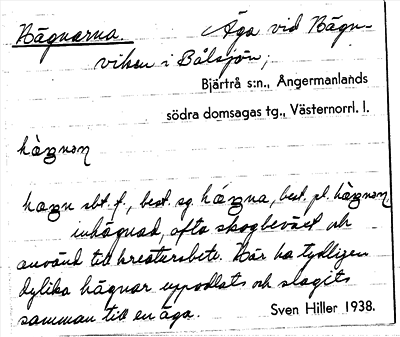 Hägnarna. Äga vid Hägn-
viken i Bålsjön;
Bjärtrå s:n., Ångermanlands
södra domsagas tg., Västernorrl. l.
hæ̀gnən
hægn sbt. f., best. sg. hǽgna, best. pl. hæ̀gnən,
inhägnad, ofta skogbeväxt och
använd till kreatursbete. Här ha tydligen
dylika hägnar uppodlats och slagits
samman till en äga.
Sven Hiller 1938.